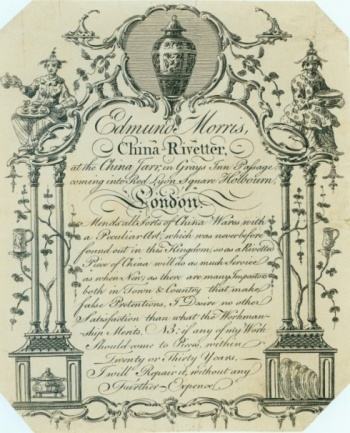 Edmund Morris,
China Rivetter,
at the China Jarr, in Grays Inn Passage,
coming into Red Lyon Square Holbourn,
London.
Mends all Sorts of China Ware with
a Peculiar Art, which was never before
found out in this Kingdom, so as a Rivetted
Piece of China will do as much Service
as when New, as there are many Imposters
both in Town & Country that make
false Pretentions, I Desire no other
Satisfaction than what the Workman-
ship Merits. NB; if any of my Work
Should come to Pieces, within
Twenty or Thirty Years, —
I will Repair it, without any
Further Expence